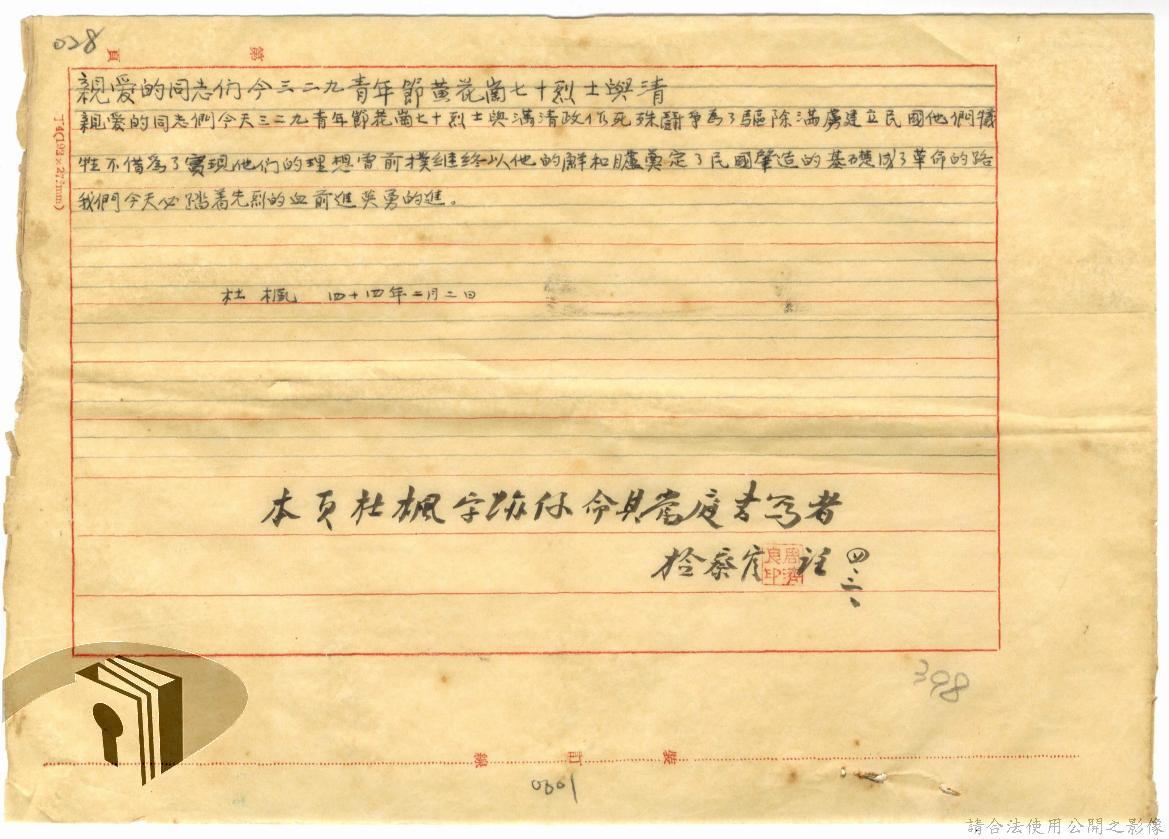 028
第 頁
親爱的同志们今三二九青年節黄花崗七十烈士與清
親爱的同志們今天三二九青年節花崗七十烈士與滿清政作死殊鬪争為了驅除滿虜建立民國他們犠
牲不惜為了實現他们的理想曾前撲继终以他的鮮和臚奠定了民國肇造的基礎成了革命的路
我們今天必踏着先烈的血前進英勇的進。
杜楓 四十四年二月二日
本頁杜楓字跡係命其當庭書写者
检察官 周濟良印 註 四.三、
398
裝 訂 線
0301
T4(192×272mm)
請合法使用公開之影像